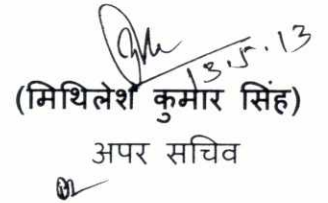 13.5.13
(मिथिलेश कुमार सिंह)
अपर सचिव